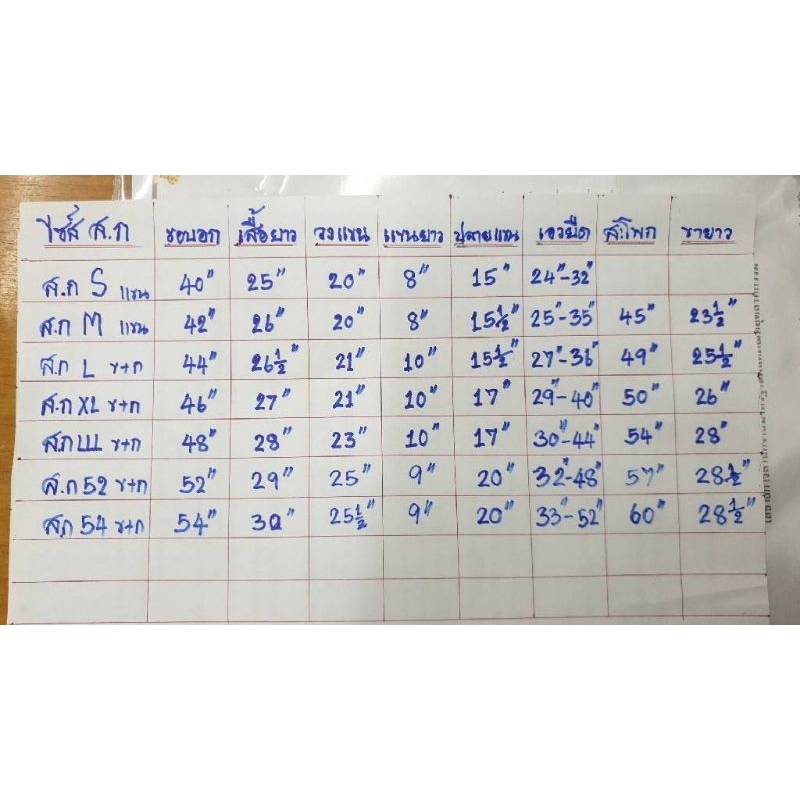 ไซส์ ส.ก รอบอก เสื้อยาว วงแขน แขนยาว ปลายแขน เอวยืด สะโพก ขายาว
ส.ก S แขน 40" 25" 20" 8" 15" 24"-32"
ส.ก M แขน 42" 26" 20" 8" 15½" 25"-35" 45" 23½"
ส.ก L ข+ก 44" 26½" 21" 10" 15½" 27"-36" 49" 25½"
ส.ก XL ข+ก 46" 27" 21" 10" 17" 29"-40" 50" 26"
ส.ก ข+ก 48" 28" 23" 10" 17" 30"-44" 54" 28"
ส.ก 52 ข+ก 52" 29" 25" 9" 20" 32"-48" 57" 28½"
ส.ก 54 ข+ก 54" 30" 25½" 9" 20" 33"-52" 60" 28½"